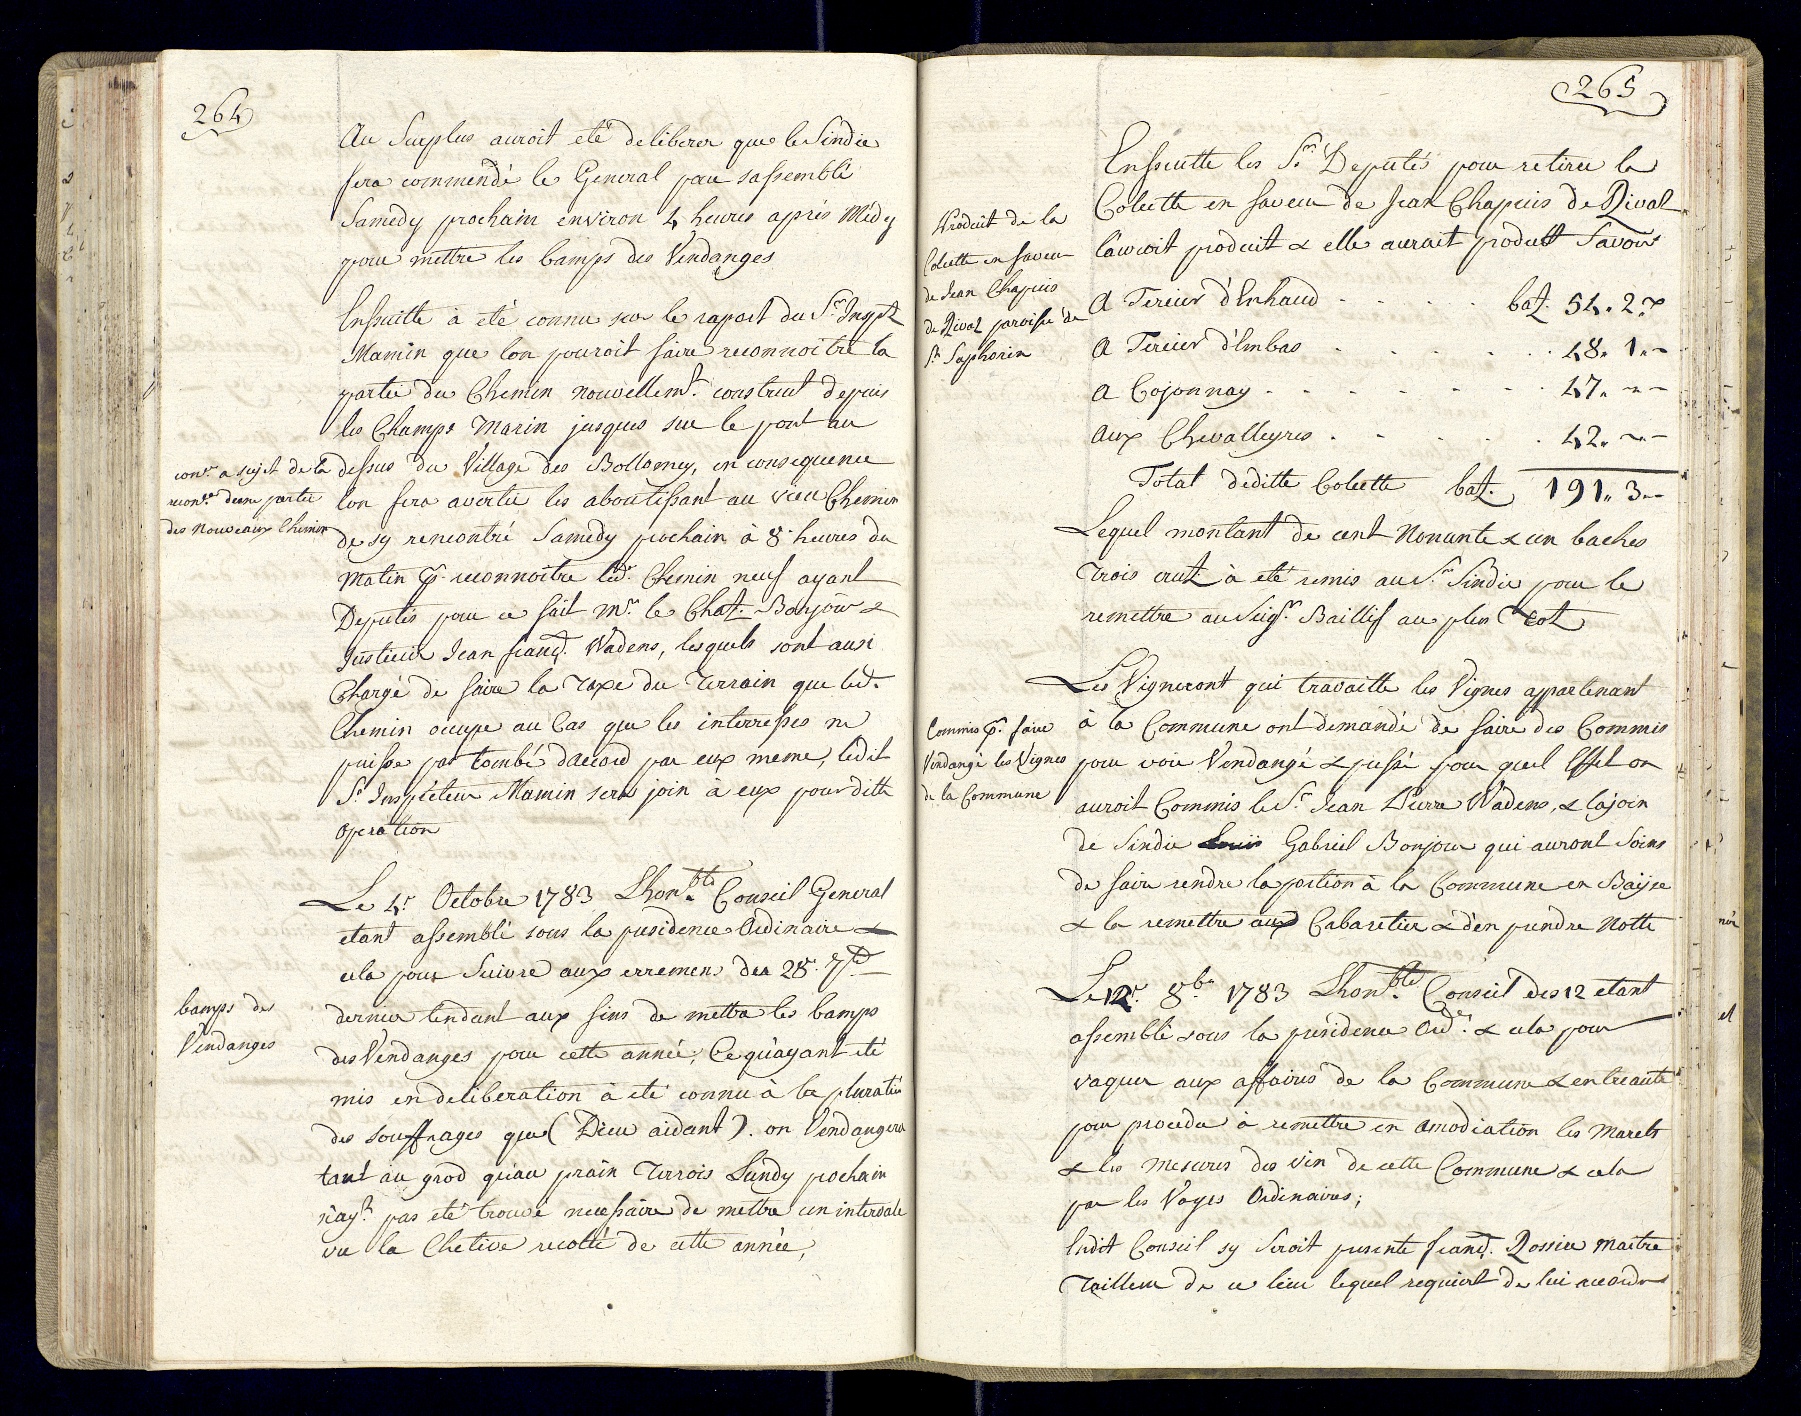 264
Au Surplus auroit eté deliberer que le Sindic
sera commendé le General pour sassemblé
Samedy prochain environ 4 heures aprés Midy
pour mettre les bamps des Vendanges
Ensuitte à eté connu sur le raport du Sr. Inspt
Mamin que lon pouroit faire reconnoitre la
partie du Chemin nouvellemt. construit depuis
les Champs Marin jusques sur le pont au
conr. a sujet de la
reconce. dune partie
des Nouveaux Chemin
dessus du Village des Bollomey, en consequence
lon fera avertir les aboutissant au vieu Chemin
de sy rencontré Samedy prochain à 8 heures du
Matin pr. reconnoitre led. Chemin neuf ayant
Deputés pour ce fait Mr. le Chat. Bonjour &
Justicier Jean franç. Wadens, lesquels sont aussi
Chargé de faire la Taxe du Terrain que led.
Chemin ocupe au Cas que les interresses ne
puisse pas tombé d'accord par eux meme, ledit
Sr. Inspecteur Mamin sera join à eux pour ditte
operation
Le 4e. Octobre 1783 Lhonble. Conseil General
etant assemblé sous la presidence Ordinaire &
cela pour Suivre aux erremens du 28e. 7bre
bamps des
Vendanges
dernier tendant aux fins de mettre les bamps
des Vendanges pour cette année, Ce qu'ayant eté
mis en deliberation à eté connu à la pluralité
des souffrages que (Dieu aidant). on Vendangera
tant au grod qu'au prain Terrois Lundy pochain
n'ayt. pas eté trouvé necessaire de mettre un intervale
vu la Chetive recolte de cette année,
265
Ensuitte les Srs. Deputés pour retirer la
Colecte en faveur de Jean Chapuis de Rivaz
Produit de la
Colecte en faveur
de Jean Chapuis
de Rivaz paroisse de
St. Saphorin
l'auroit produit & elle aurait produit Savoir
A Tercier d'Enhaud - - - - baz. 54. 2. x
A Tercier d'Embas - - - - 48. 1. -
A Cojonnay - - - - 47. - -
Aux Chevalleyres - - - - 42. - -
Total deditte Colectte baz. 191. 3. -
Lequel montant de cent Nonante & un baches
Trois crutz. à eté remis au Sr. Sindic pour le
remettre au Seigr. Baillif au plus Tot
Les Vigneront qui travaille les Vignes appartenant
Commis pr. faire
Vendangé les Vignes
de la Commune
à la Commune ont demandé de faire des Commis
pour voir Vendangé & pressé pour quel Effet on
auroit Commis le Sr. Jean Pierre Wadens, & lajoin
de Sindic Gabriel Bonjour qui auront Soins
de faire rendre la portion à la Commune en
& la remettre aux Cabaretier & d'en prendre Notte
Le 12e. 8bre. 1783 Lhonble. Conseil des 12 etant
assemblé sous la presidence Ord. & cela pour
vaquer aux affaires de la Commune & entreautre
pour proceder à remettre en amodiation les Marets
& les Mesures des Vin de cette Commune & cela
par les Voyes Ordinaires;
Endit Conseil sy seroit presente franç. Rossier Maitre
Tailleur de ce lieu lequel requiert de lui accorder